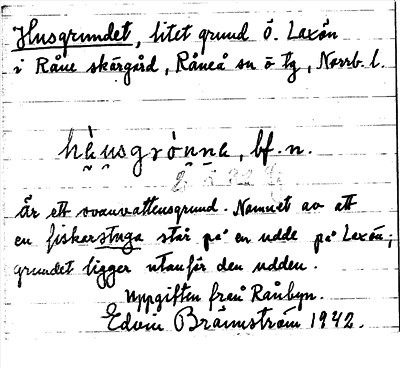 Husgrundet, litet grund ö. Laxön
i Råne skärgård, Råneå sn ö tg, Norrb. l.
hạ̀usgrònna, bf. n.
är ett ovanvattensgrund. Namnet av att
en fiskarstuga står på en udde på Laxön;
grundet ligger utanför den udden.
Uppgiften från Rånbyn.
Edvin Brännström 1942.